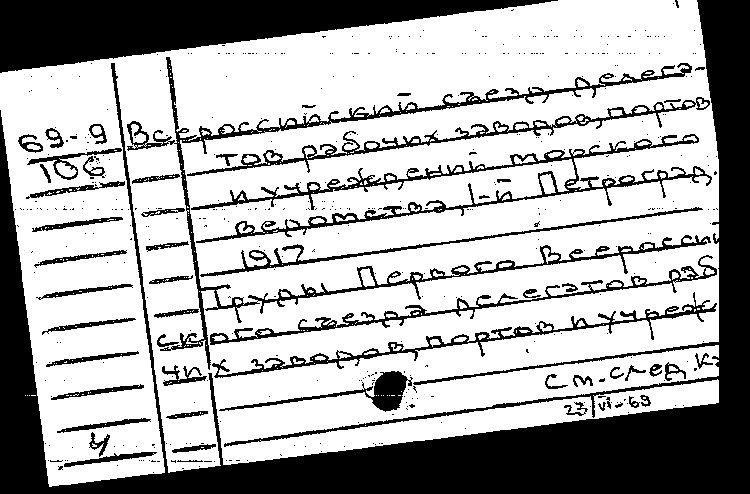 69-9
106
Всероссийский съезд делега-
тов рабочих заводов, портов
и учреждений морского
ведомства, 1-й Петроград.
1917
Труды Первого Всеросси
ского съезда делегатов раб
чих заводов, портов и учреж
См. след. к
23/VI-69
4